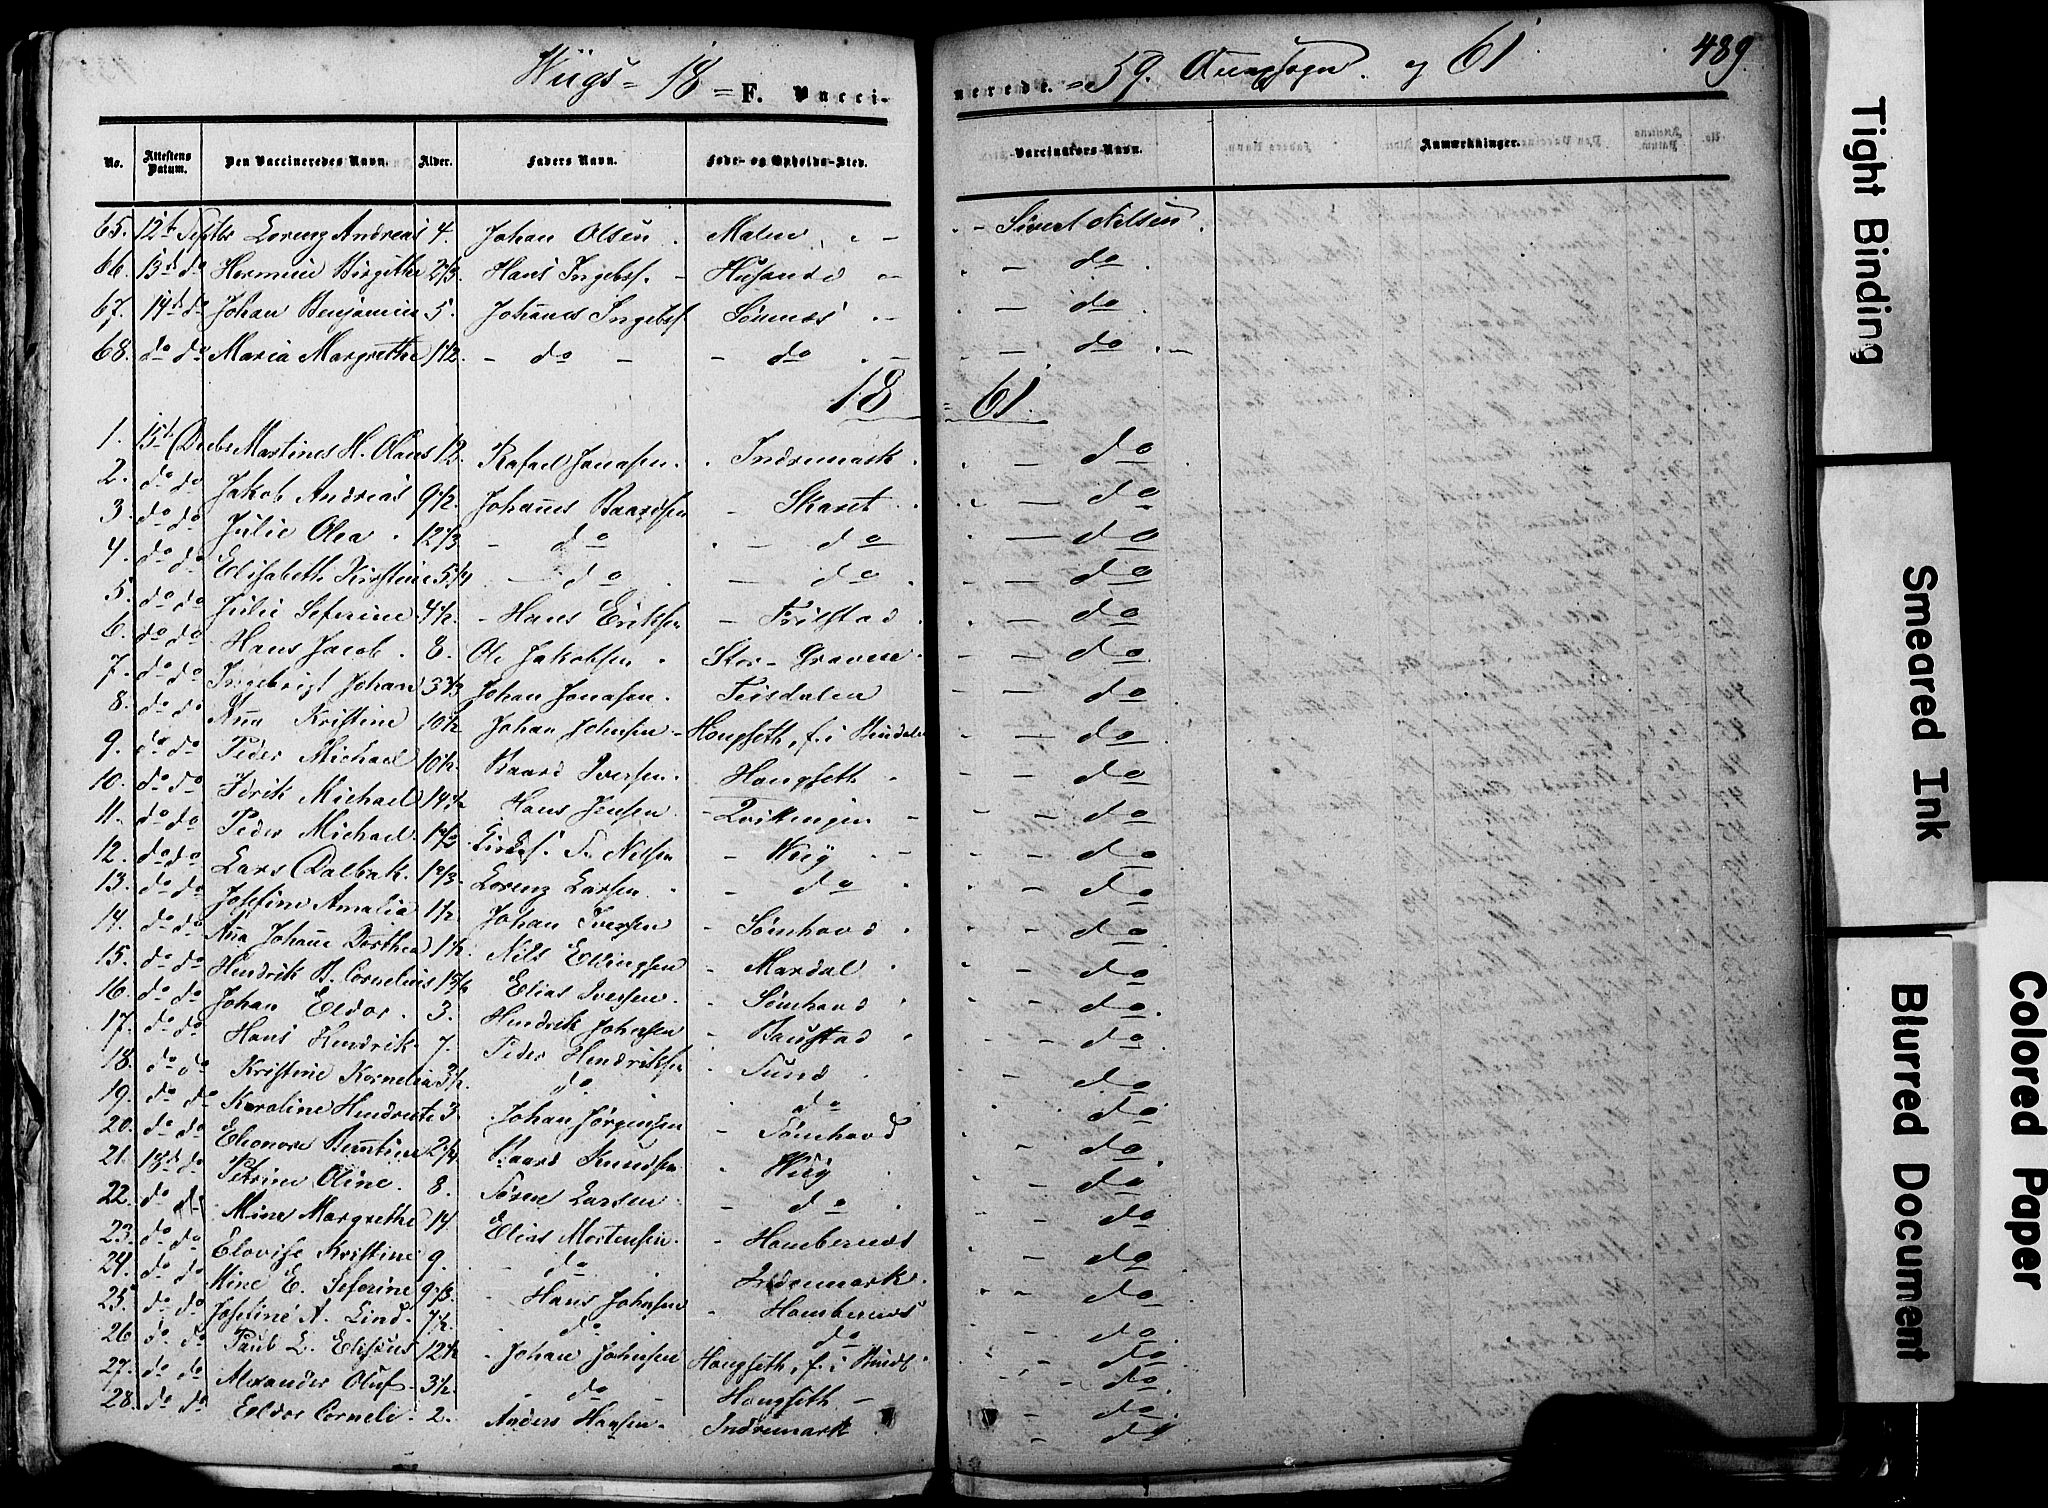 Wiigs - 18 - F. Vacci-
nerede. - 59. Annexsogn. og 61 489.
No. Attestens Datum. Den Vaccineredes Navn. Alder. Faders Navn. Føde- og Opholds-Sted. Vaccinators Navn. Anmærkninger.
65. 12te Septbr Lorenz Andreas 4. Johan Olsen Malen - Sivert Nilsen.
66. 13d do Hermine Birgitte 2 1/3 Hans Ingebr. - do
67. 14d do Johan Benjamin 5. Johanes Ingebr. Sømnæs - do
68. do do Maria Margrethe 1 1/2 - do - - do - - do
18 61.
1. 15d Decbr Martines H. Olaus 12. Rafael Jonasen. Indremark - do
2. do do Jakob Andreas 9 1/2 Johanes Baardsen - Skaret - do
3. do do Julie Olea 12 1/3 - do - do - do
4. do do Elisabeth Kirstine 5 1/4 - do - do - do
5. do do Julie Seferine 4 1/2 - Hans Eriksen - Tristad - do
6. do do Hans Jacob 8. Ole Jakobsen Stor-Gravene - do
7. do do Ingebrigt Johan 3 2/3 Johan Jonasen. Teisdalen - do
8. do do Ana Kristine 10 1/2 Johan Johnsen - Hongseth, f. i Bindalen - do
9. do do Peder Michael 10 1/2 Baard Iversen. Hongseth - do
10. do do Fdrik Michael 14 1/2 Hans Jensen - do
11. do do Peder Michael Nilsen - Wiig - do
12. do do Lars Dalbak. 1 2/3 Lorenz Larsen - do - do
13. do do Josefine Amalia 1 1/2 Johan Iversen - Sømhovd - do
14. do do Ana Johane Dorthea 1 1/2 Nils Ellingsen - Mardal - do
15. do do Hendrik B. Cornelius Elias Iversen. - Sømhovd - do
16. do do Johan Eldor. 3. Hendrik Johnsen - Baustad - do
17. do do Hans Hendrik 7. Peder Hendriksen - Sund - do
18. do do Kristine Kornelia 3 1/2 do do - do
19. do do Karoline Hendrente 3. Johan Jørgensen - Sømhovd - do
20. do do Elenore Bentine 2 1/4 Baard Knudsen - Wiig - do
21. 18d do Petrine Oline. 8. Søren Larsen - do - do
22. do do Mine Margrethe 14 Elias Mortensen. Hombernes - do
23. do do Elovise Kristine 9. - do Indremark - do
24. do do Mine E. Seferine 9 2/3 - Hans Johnsen - Hombernes - do
25. do do Josefine A. Lind. 7 1/2 do do - do
26. do do Paul L. Elisæus 12 1/2 - Johan Johnsen Hongseth, f. i Bindl. - do
27. do do Alexander Oluf 3 1/2 do Hongseth - do
28. do do Eeldor Corneli. 2. Anders Hansen. Indremark - do
Tight Binding
Smeared Ink
Blurred Document
Colored Paper